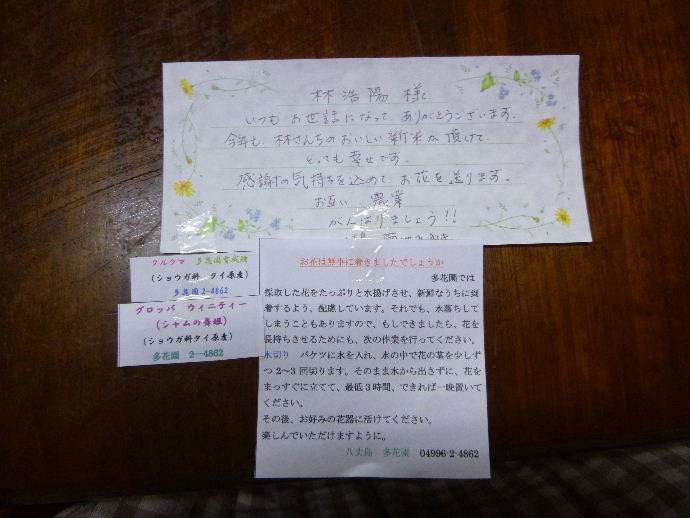 林浩陽 様
いつも お世話になって ありがとうございます.
今年も 林さんちの おいしい 新米が 頂けて
とっても 幸せです。
感謝の気持ちを込めて お花を 送ります。
お互い 農業
がんばりましょう!!
クルクマ 多花園育成種
(ショウガ科 タイ原産)
多花園 2-4862
グロッバ ウィニティー
(シャムの舞姫)
(ショウガ科タイ原産)
多花園 2―4862
お花は無事に着きましたでしょうか
多花園では
採取した花をたっぷりと水揚げさせ、新鮮なうちに到
着するよう、配慮しています。それでも、水落ちして
しまうこともありますので、もしできましたら、花を
長持ちさせるためにも、次の作業を行ってください。
水切り バケツに水を入れ、水の中で花の茎を少しず
つ 2~3 回切ります。そのまま水から出さずに、花を
まっすぐに立てて、最低 3 時間、できれば一晩置いて
ください。
その後、お好みの花器に活けてください。
楽しんでいただけますように。
八丈島 多花園 04996-2-4862